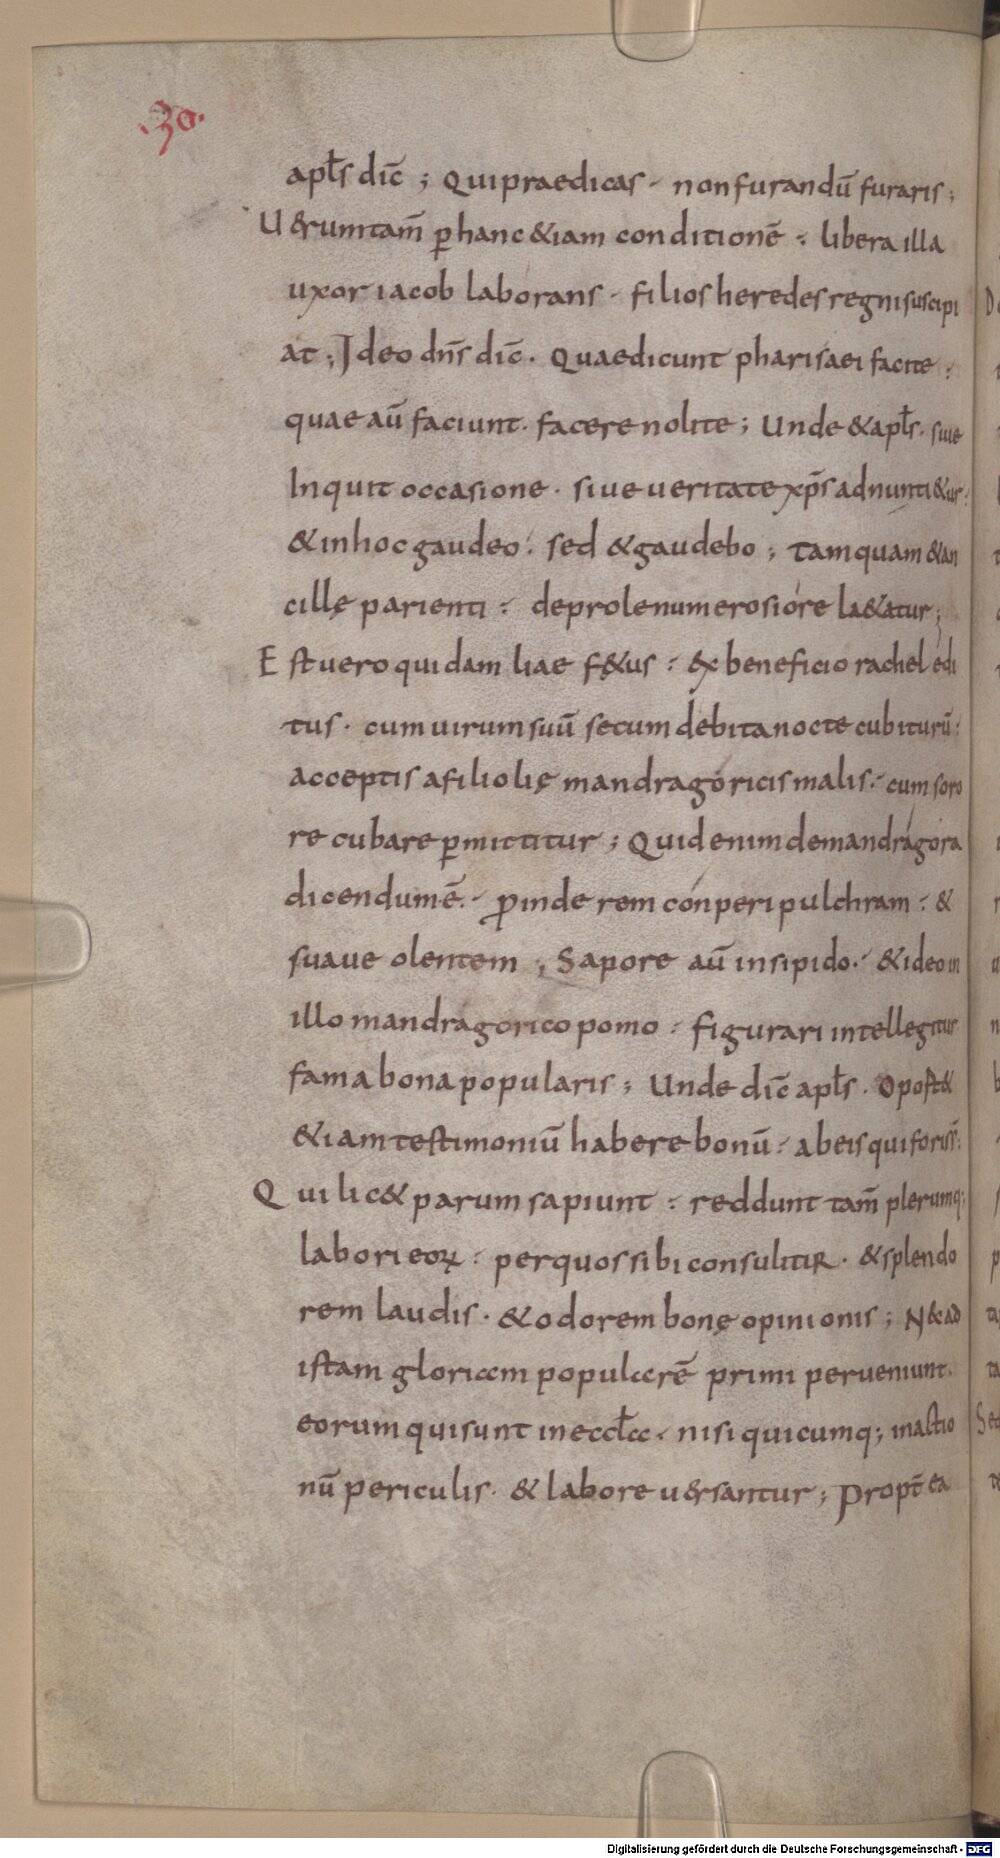 .30.
apłs dic̄ ; Qui praedicas · non furandū furaris ;
U&rumtam̄ ꝑ hanc &iam conditionē : libera illa
uxor iacob laborans · filios heredes regni suscipi
at ; Ideo dn̄s dic̄ . Quae dicunt pharisaei facite :
quae aū faciunt . facere nolite ; Unde & apłs . siue
Inquit occasione . siue ueritate xp̄s adnunti&ur :
& in hoc gaudeo . sed & gaudebo ; tamquam & an
cillę parienti : de prole numerosiore la&atur ;
Est uero quidam liae f&us : ex beneficio rachel edi
tus . cum uirum suū secum debita nocte cubiturū :
acceptis a filio lię mandragoricis malis : cum soro
re cubare ꝑmittitur ; Quid enim de mandragora
dicendum ē . ꝓinde rem conperi pulchram : &
suaue olentem ; Sapore aū insipido . & ideo in
illo mandragorico pomo : figurari intellegitur
fama bona popularis ; Unde dic̄ apłs . Oport&
& iam testimoniū habere bonū : ab eis qui foris s̄ :
Qui lic& parum sapiunt : reddunt tam̄ plerumq;
labori eoꝝ : per quos sibi consulitur . & splendo
rem laudis . & odorem bonę opinionis ; N& ad
istam gloriam popularē primi perueniunt .
eorum qui sunt in eccła . nisi quicumq; in actio
nū periculis . & labore u&rsantur ; Propt̄ ea
Digitalisierung gefördert durch die Deutsche Forschungsgemeinschaft - DFG